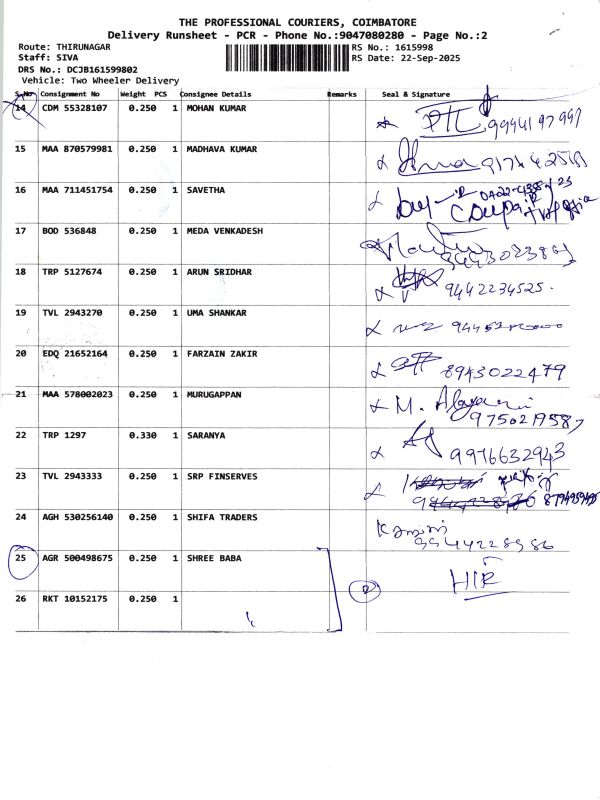 THE PROFESSIONAL COURIERS, COIMBATORE
Delivery Runsheet - PCR - Phone No.:9047080280 - Page No.:2
Route: THIRUNAGAR RS No.: 1615998
Staff: SIVA RS Date: 22-Sep-2025
DRS No.: DCJB161599802
Vehicle: Two Wheeler Delivery
S.No Consignment No Weight PCS Consignee Details Remarks Seal & Signature
14 CDM 55328107 0.250 1 MOHAN KUMAR
15 MAA 870579981 0.250 1 MADHAVA KUMAR
16 MAA 711451754 0.250 1 SAVETHA
17 BOD 536848 0.250 1 MEDA VENKADESH
18 TRP 5127674 0.250 1 ARUN SRIDHAR 9442234525.
19 TVL 2943270 0.250 1 UMA SHANKAR
20 EDQ 21652164 0.250 1 FARZAIN ZAKIR 8943022479
21 MAA 578002023 0.250 1 MURUGAPPAN M.
9750219587
22 TRP 1297 0.330 1 SARANYA 9976632943
23 TVL 2943333 0.250 1 SRP FINSERVES
24 AGH 530256140 0.250 1 SHIFA TRADERS
9944228986
25 AGR 500498675 0.250 1 SHREE BABA
26 RKT 10152175 0.250 1